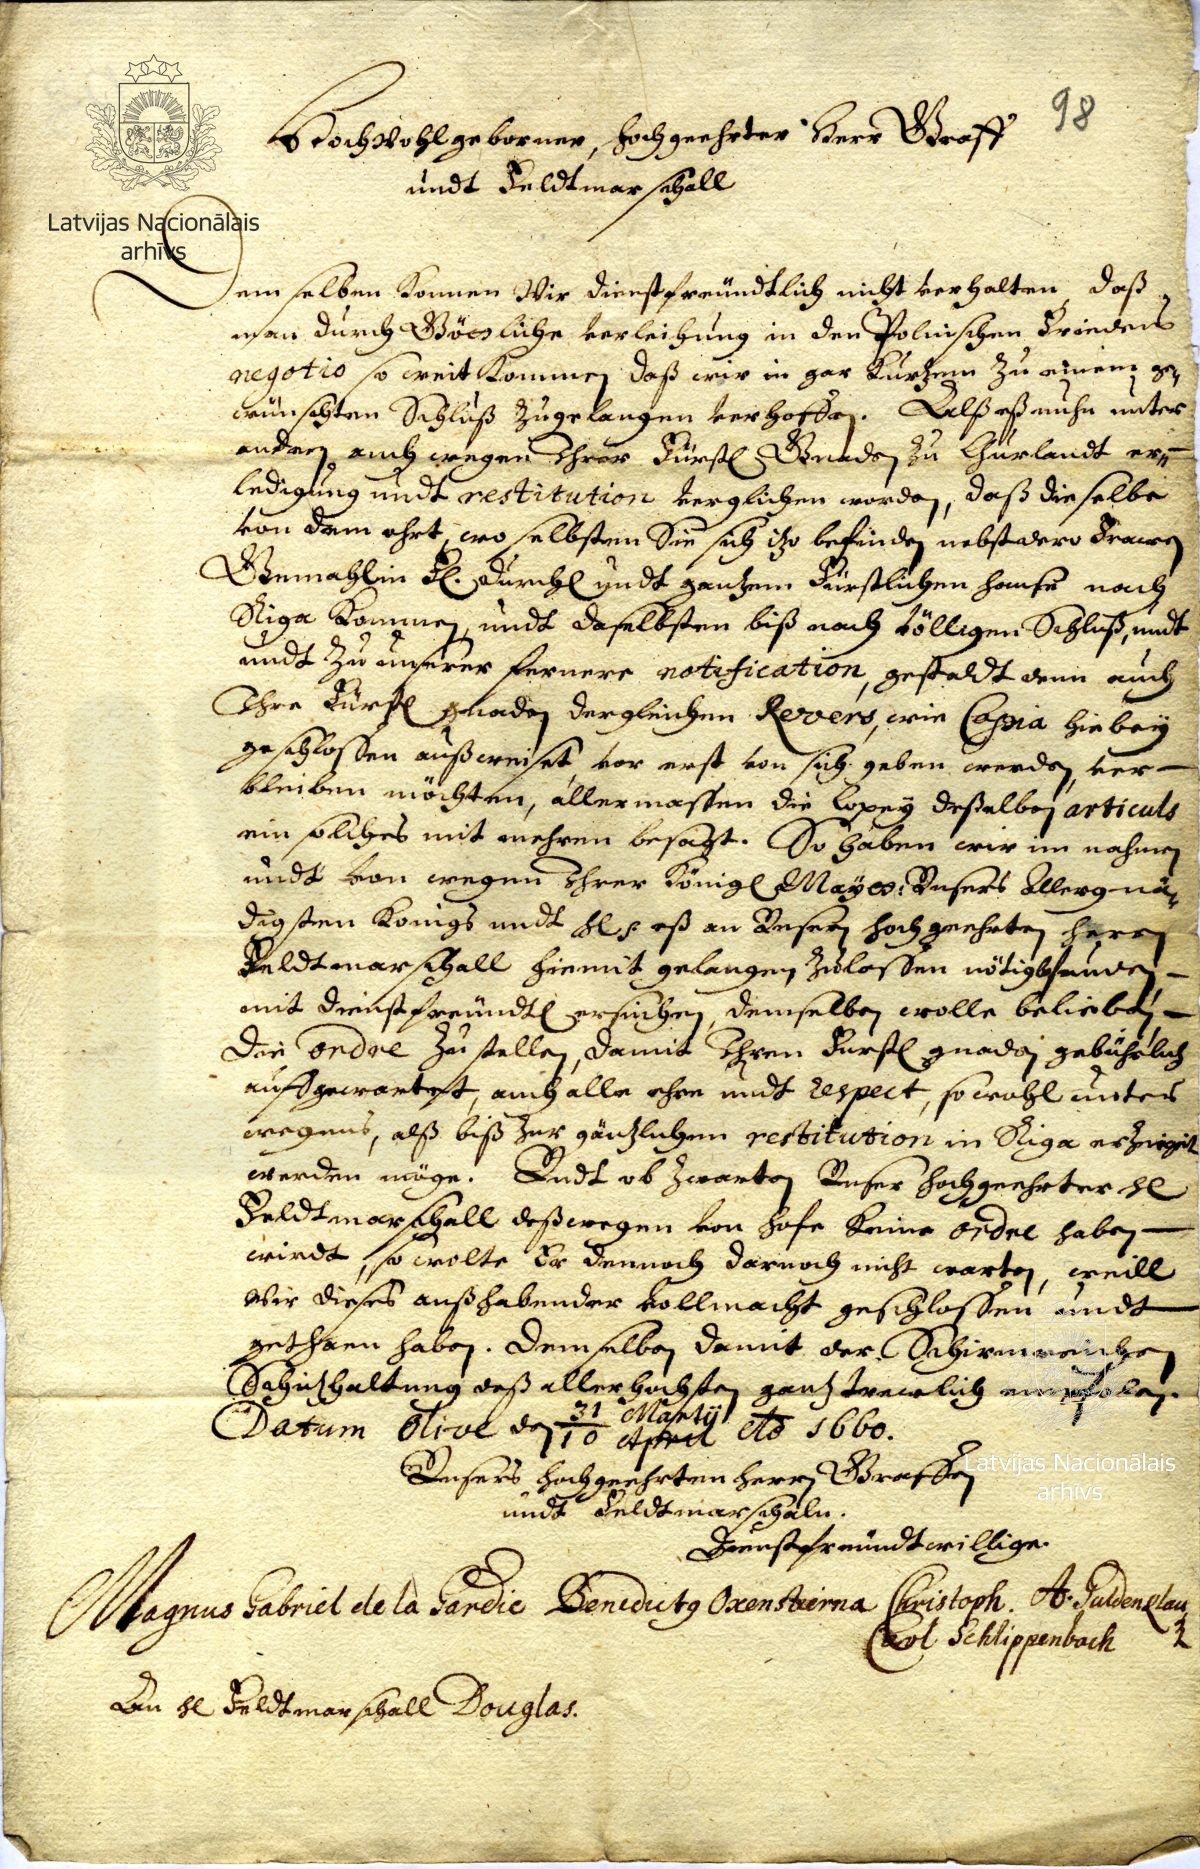 98
Hochwohlgeborner, hochgeehrter Herr Graff
undt Feldtmarschall
Latvijas Nacionālais
arhīvs
Demselben Konnen Wir dienstfreündtlich nicht verhalten, daß
man durch Göttliche verleihung in den Polnischen Friedens
negotio so weit Kommen daß wir in gar Kurtzem zu einem ge,,
wünschten Schluß zugelangen verhoffen. Alß eß nuhn unter
andren auch wegen Ihrer Fürstl Gnaden zu Churlandt er,,
ledigung undt restitution verglichen worden, daß dieselbe
von dem ohrt, wo selbsten Sie sich itzo befinden nebst dero Frawen
Gemahlin Fl. Durchl undt gantzem Fürstlichen hause nach
Riga Kommen, undt daselbsten biß nach völligen Schluß, undt
undt zu unserer fernere notification, gestaldt denn auch
Ihre Fürstl gnaden dergleichen Revers, wie Copia hiebey
geschlossen außweiset, vor erst von sich geben werden, ver-
bleiben möchten, allermassen die Copey deßelben articuls
ein solches mit mehren besagt. So haben wir im nahmen
undt von wegen Ihrer Königl Mayes: Unsers Allergnä,,
digsten Konigs undt hl eß an Unsern hochgeehrten herrn
Feldtmarschall hiemit gelangen zulassen nötig befunden,
mit dienstfreündtl ersuchen, demselben wolle belieben
die ordre zu stellen, damit Ihren Fürstl gnaden gebührlich
auffgewartet, auch alle ehre undt respect, so wohl unter
wegens, alß biß zur gäntzlichen restitution in Riga erzeiget
werden möge. Undt ob zwarten Unser hochgeehrter hl
Feldtmarschall deßwegen von hofe Keine ordre haben
wirdt, so wolte Er dennoch darnach nicht warten, weill
Wir dieses auß habender vollmacht geschlossen undt
gethaen haben. Demselben damit der Schirmreichen
Schutzhaltung deß allerhochsten gantz trewlich empfolen.
Datum Olive den 31 Martij / 10 April Ao 1660.
Latvijas Nacionālais
arhīvs
Unsers hochgeehrten herrn Graffen
undt Feldtmarschaln.
Dienstfreündtwillige.
Magnus Gabriel de la Gardie Benedictg Oxenstierna Christoph. A. Gulden
Carl Schlippenbach
An hl Feldtmarschall Douglas.